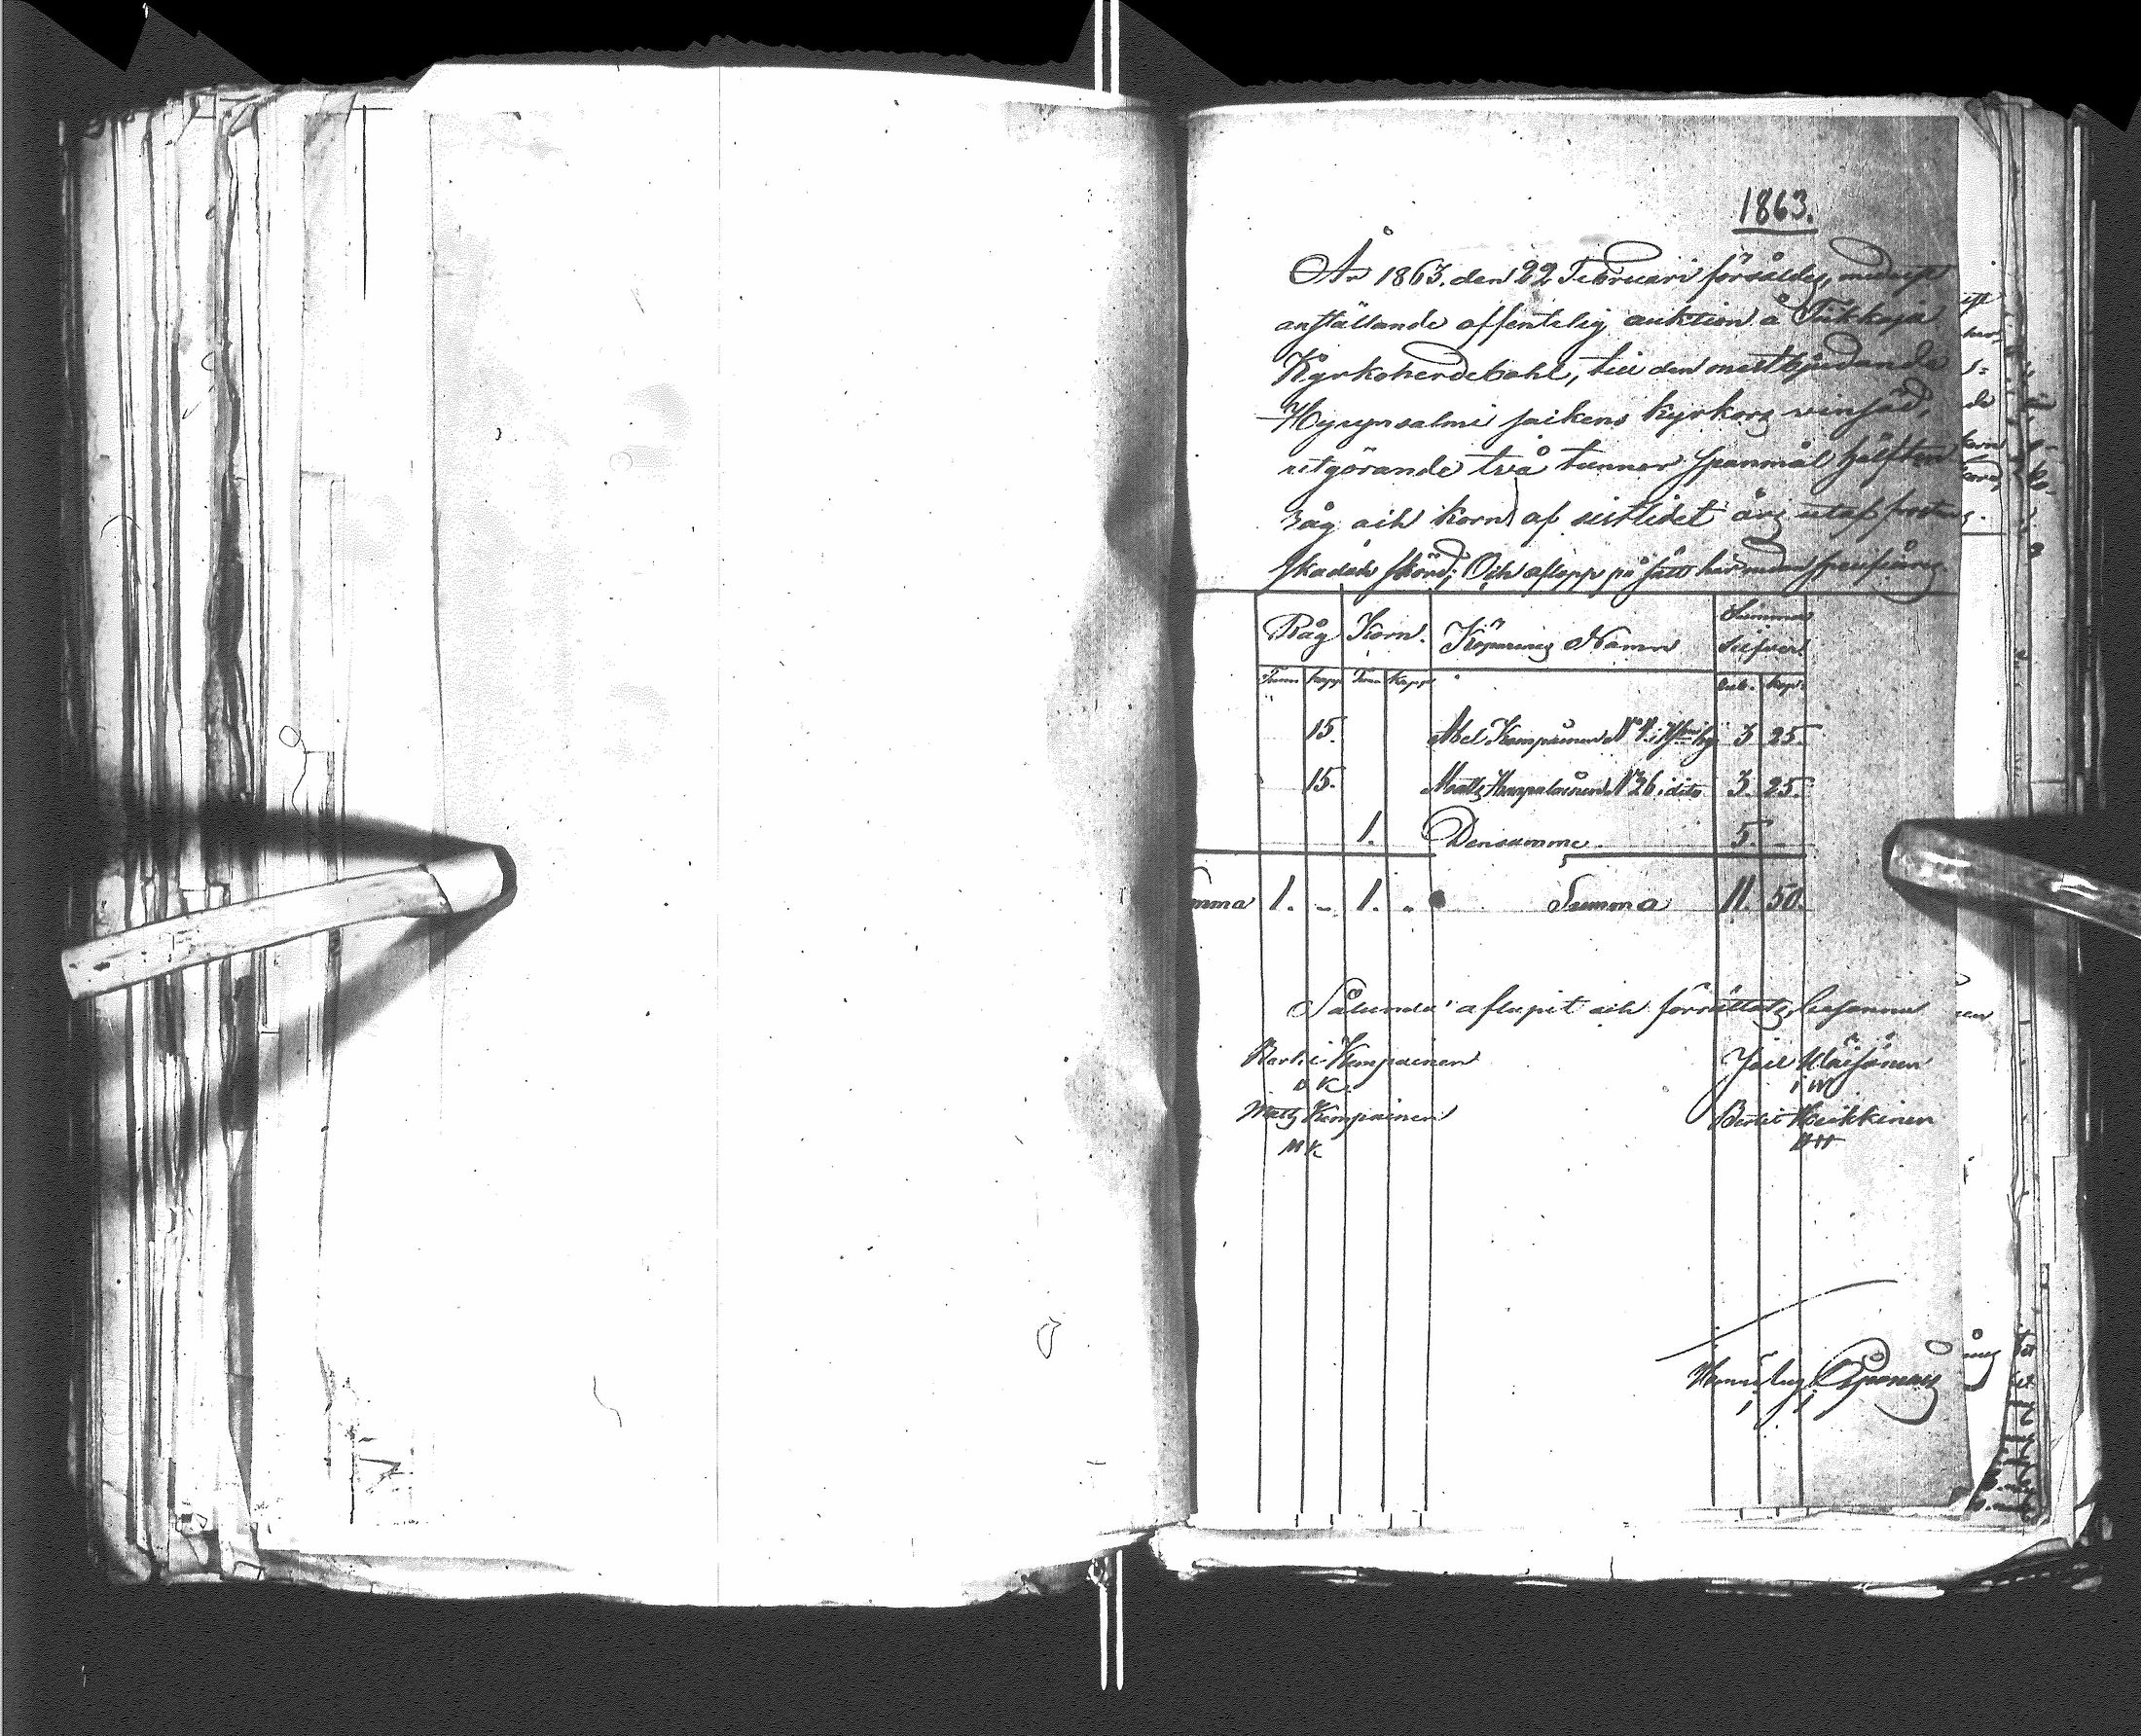 1863.
År 1863. den 22 Februari försåldes, medelst
anställande offentelig auktion å Tukkoja
Kyrkoherdebohl, till den mestbjudande
Hyrynsalmi sokens kyrkas vinsäd,
utgörande två tunnor spanmål hälften
råg och korn af sistledet års utaf frost
skadade skörd; Och aflopp på sätt här nedan
Råg Korn. Köparens Namn Summa Silfver.
Tunn kapp Tunn kapp Rub. kop.
15. Abel Kempainen N 4. i by 3 25.
15. Matts Haapalainen N 26. i dito 3. 25.
1. Densamme 5. -
mma 1. - 1. - Summa 11. 50.
Sålunda aflupit och förrättats, besanna
Kempainen
K.
Matts Kempainen
M K
Joel Väisänen
Bertel Heikkinen